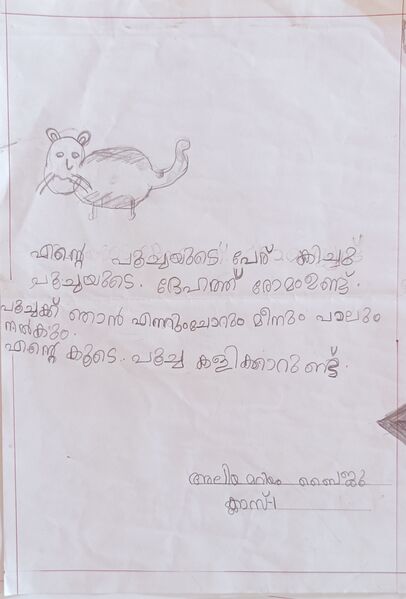 എന്റെ പൂച്ചയുടെ പേര് കിച്ചു
പൂച്ചയുടെ. ദേഹത്ത് രോമംഉണ്ട്.
പൂച്ചക്ക് ഞാൻ എന്നുംചോറും മീനും പാലും
നൽകും.
എന്റെ കൂടെ. പൂച്ച കളിക്കാറുണ്ട്.
അലിയ മറിയം ബൈജു
ക്ലാസ്-1